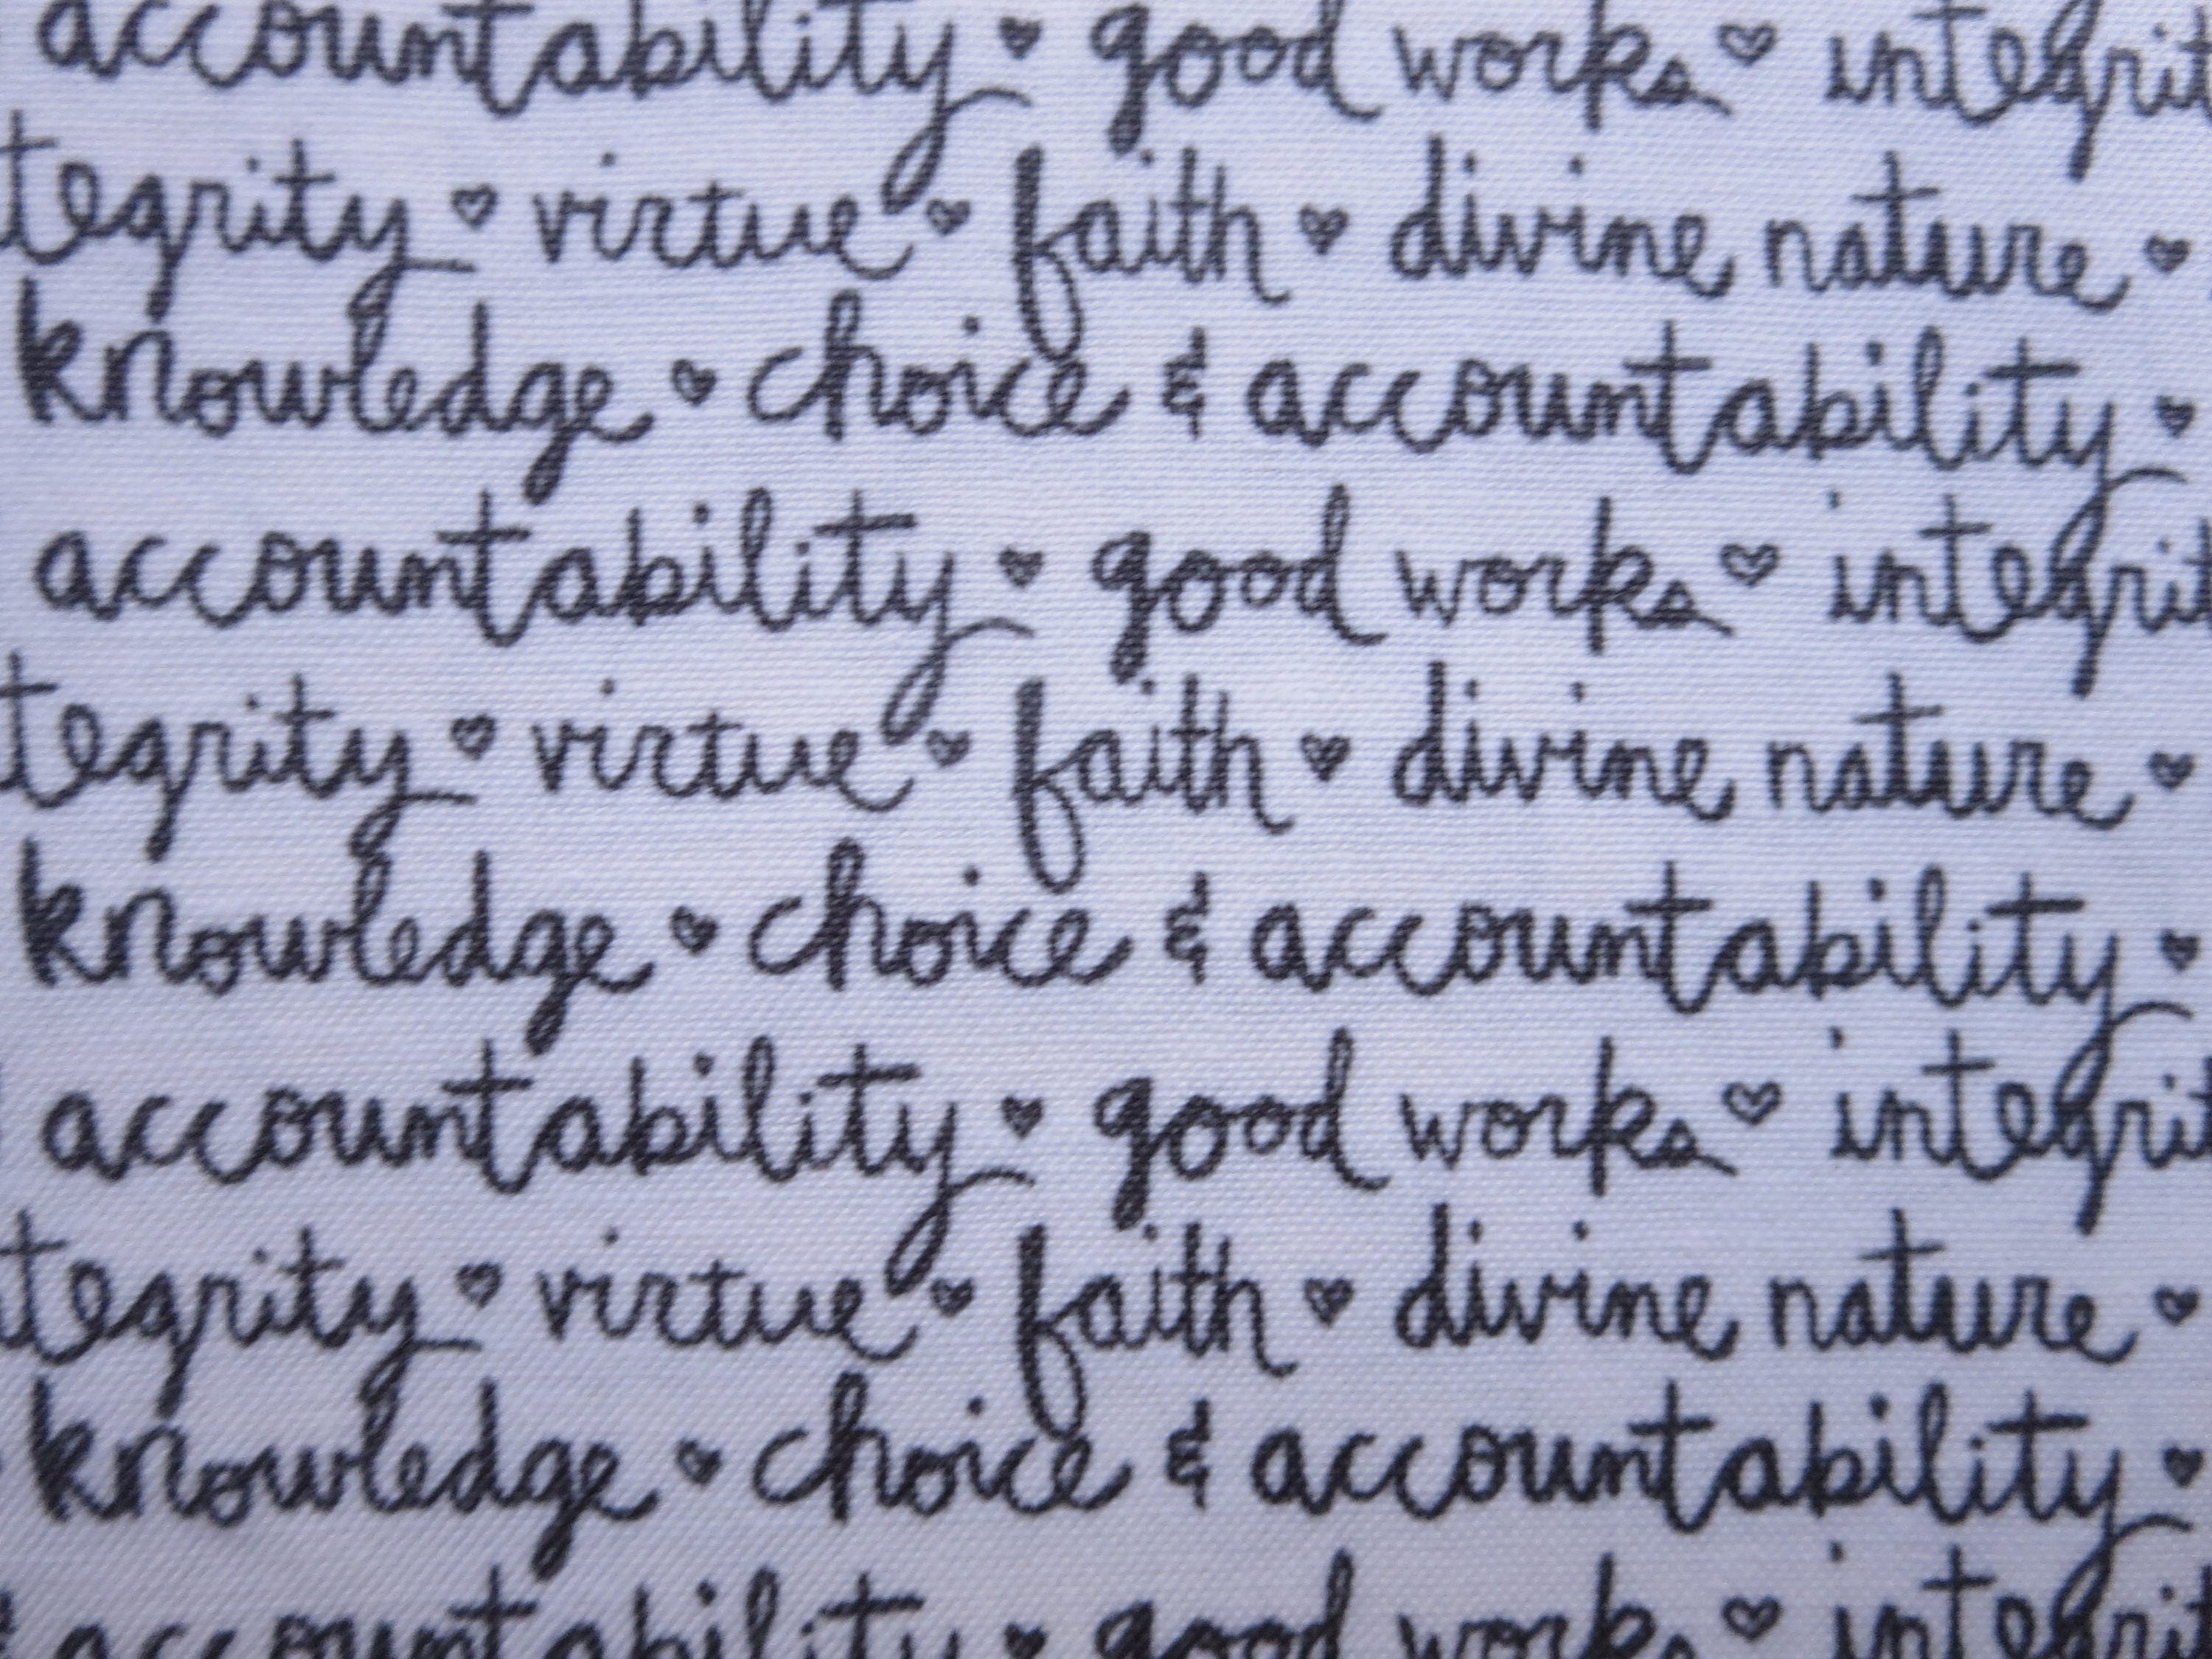 accountability ♥ good works ♥ integrit
tegrity ♥ virtue ♥ faith ♥ divine nature ♥
knowledge ♥ choice & accountability ♥
accountability ♥ good works ♥ integrit
tegrity ♥ virtue ♥ faith ♥ divine nature ♥
knowledge ♥ choice & accountability ♥
accountability ♥ good works ♥ integrit
tegrity ♥ virtue ♥ faith ♥ divine nature ♥
knowledge ♥ choice & accountability ♥
accountability ♥ good works ♥ integrit